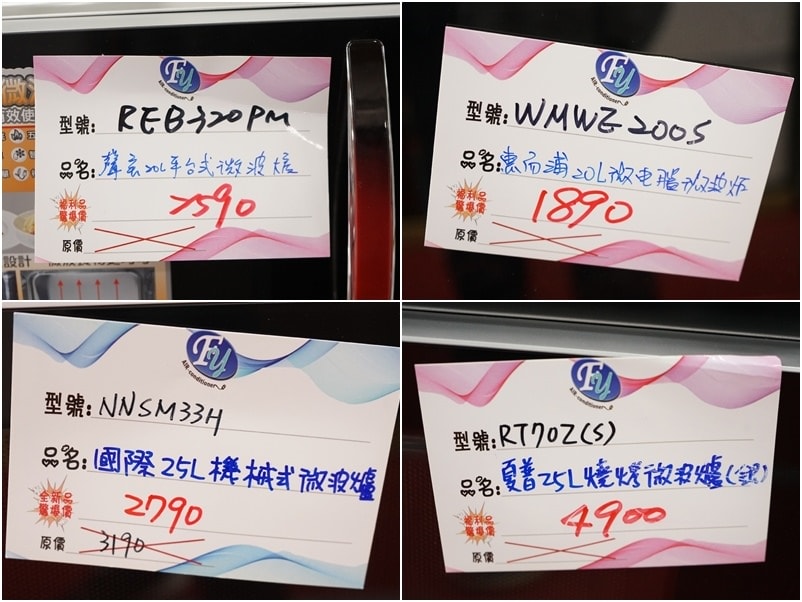 Fy
Air-conditioner
型號: REB320PM
品名: 聲寶20L平台式微波爐
福利品
驚爆價
2590
原價
設計
Fy
Air-conditioner
型號: WMWE200S
品名: 惠而浦20L微电腦微波炉
福利品
驚爆價
1890
原價
Fy
Air-conditioner
型號: NNSM33H
品名: 國際25L機械式微波爐
全新品
驚爆價
2790
原價 3190
Fy
Air-conditioner
型號: RT70Z(S)
品名: 夏普25L燒烤微波爐(銀)
福利品
驚爆價
4900
原價